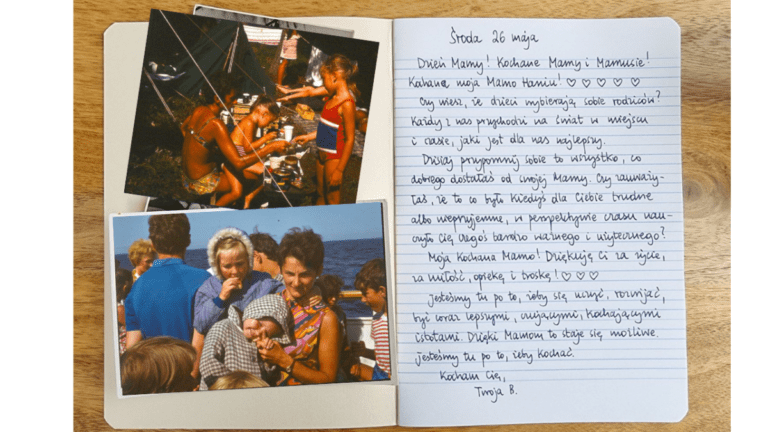 Środa 26 maja
Dzień Mamy! Kochane Mamy i Mamusie!
Kochana moja Mamo Haniu! ♡ ♡ ♡ ♡ ♡
Czy wiesz, że dzieci wybierają sobie rodziców?
Każdy z nas przychodzi na świat w miejscu
i czasie, jaki jest dla nas najlepszy.
Dzisiaj przypomnij sobie to wszystko, co
dobrego dostałaś od swojej Mamy. Czy zauważy-
łaś, że to co było kiedyś dla Ciebie trudne
albo nieprzyjemne, w perspektywie czasu nau-
czyło Cię czegoś bardzo ważnego i użytecznego?
Moja Kochana Mamo! Dziękuję Ci za życie,
za miłość, opiekę i troskę! ♡ ♡ ♡
Jesteśmy tu po to, żeby się uczyć, rozwijać,
być coraz lepszymi, czującymi, kochającymi
istotami. Dzięki Mamom to staje się możliwe.
Jesteśmy tu po to, żeby kochać.
Kocham Cię,
Twoja B.